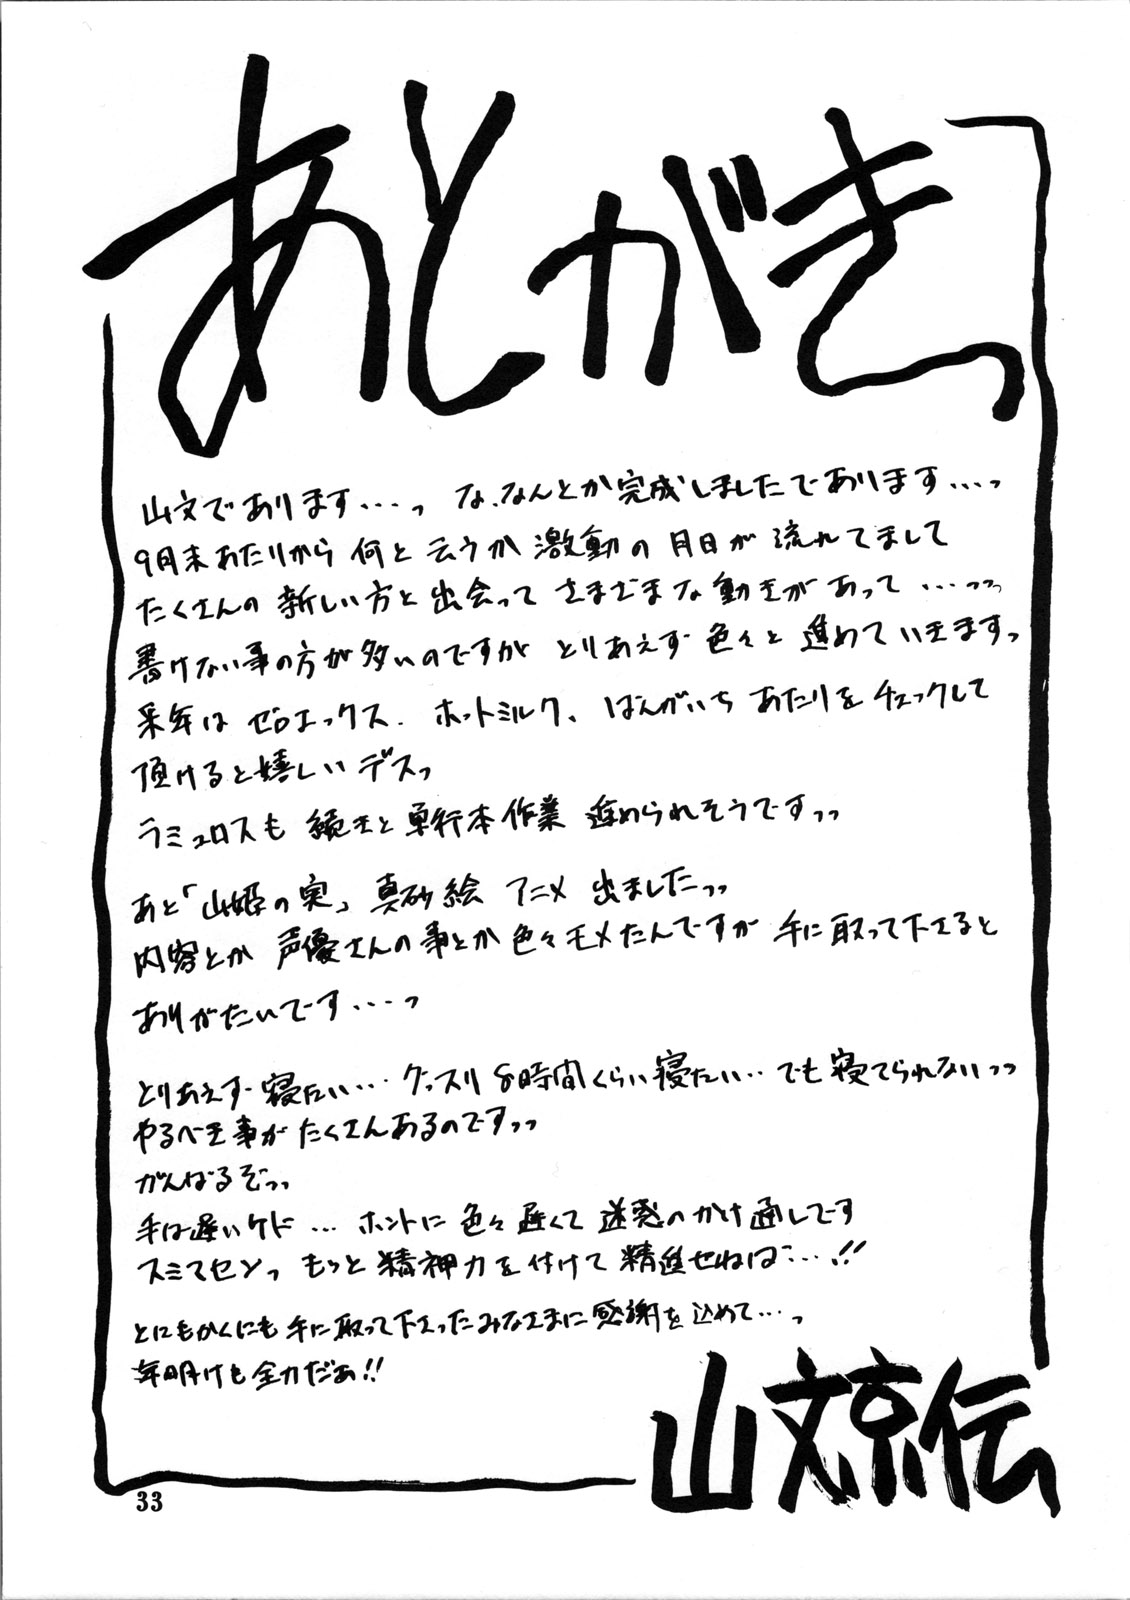 あとがきっ
山文であります・・・っ な、なんとか完成しましたであります・・・っ
9月末あたりから 何と云うか 激動の 月日が 流れてまして
たくさんの 新しい方と 出会って さまざまな 動きが あって ・・・っっ
書けない事の方が多いのですが とりあえず 色々と 進めて いきますっ
来年は ゼロエックス、ホットミルク、ばんがいち あたりを チェックして
頂けると嬉しい デスっ
ラミュロスも 続きと 単行本作業 進められそうですっっ
あと「山姫の実」真砂絵 アニメ 出ましたっっ
内容とか 声優さんの事とか 色々モメたんですが 手に取って下さると
ありがたいです・・・っ
とりあえず 寝たい・・・ グッスリ 8時間くらい 寝たい・・ でも 寝てられないっっ
やるべき事が たくさんあるのですっっ
がんばるぞっっ
手は遅いケド ・・・ ホントに 色々 遅くて 迷惑のかけ通しです
スミマセンっ もっと 精神力を付けて 精進せねば・・・!!
とにもかくにも 手に取って下さったみなさまに 感謝を 込めて・・・っ
年明けも 全力だぁ!!
山文京伝
33